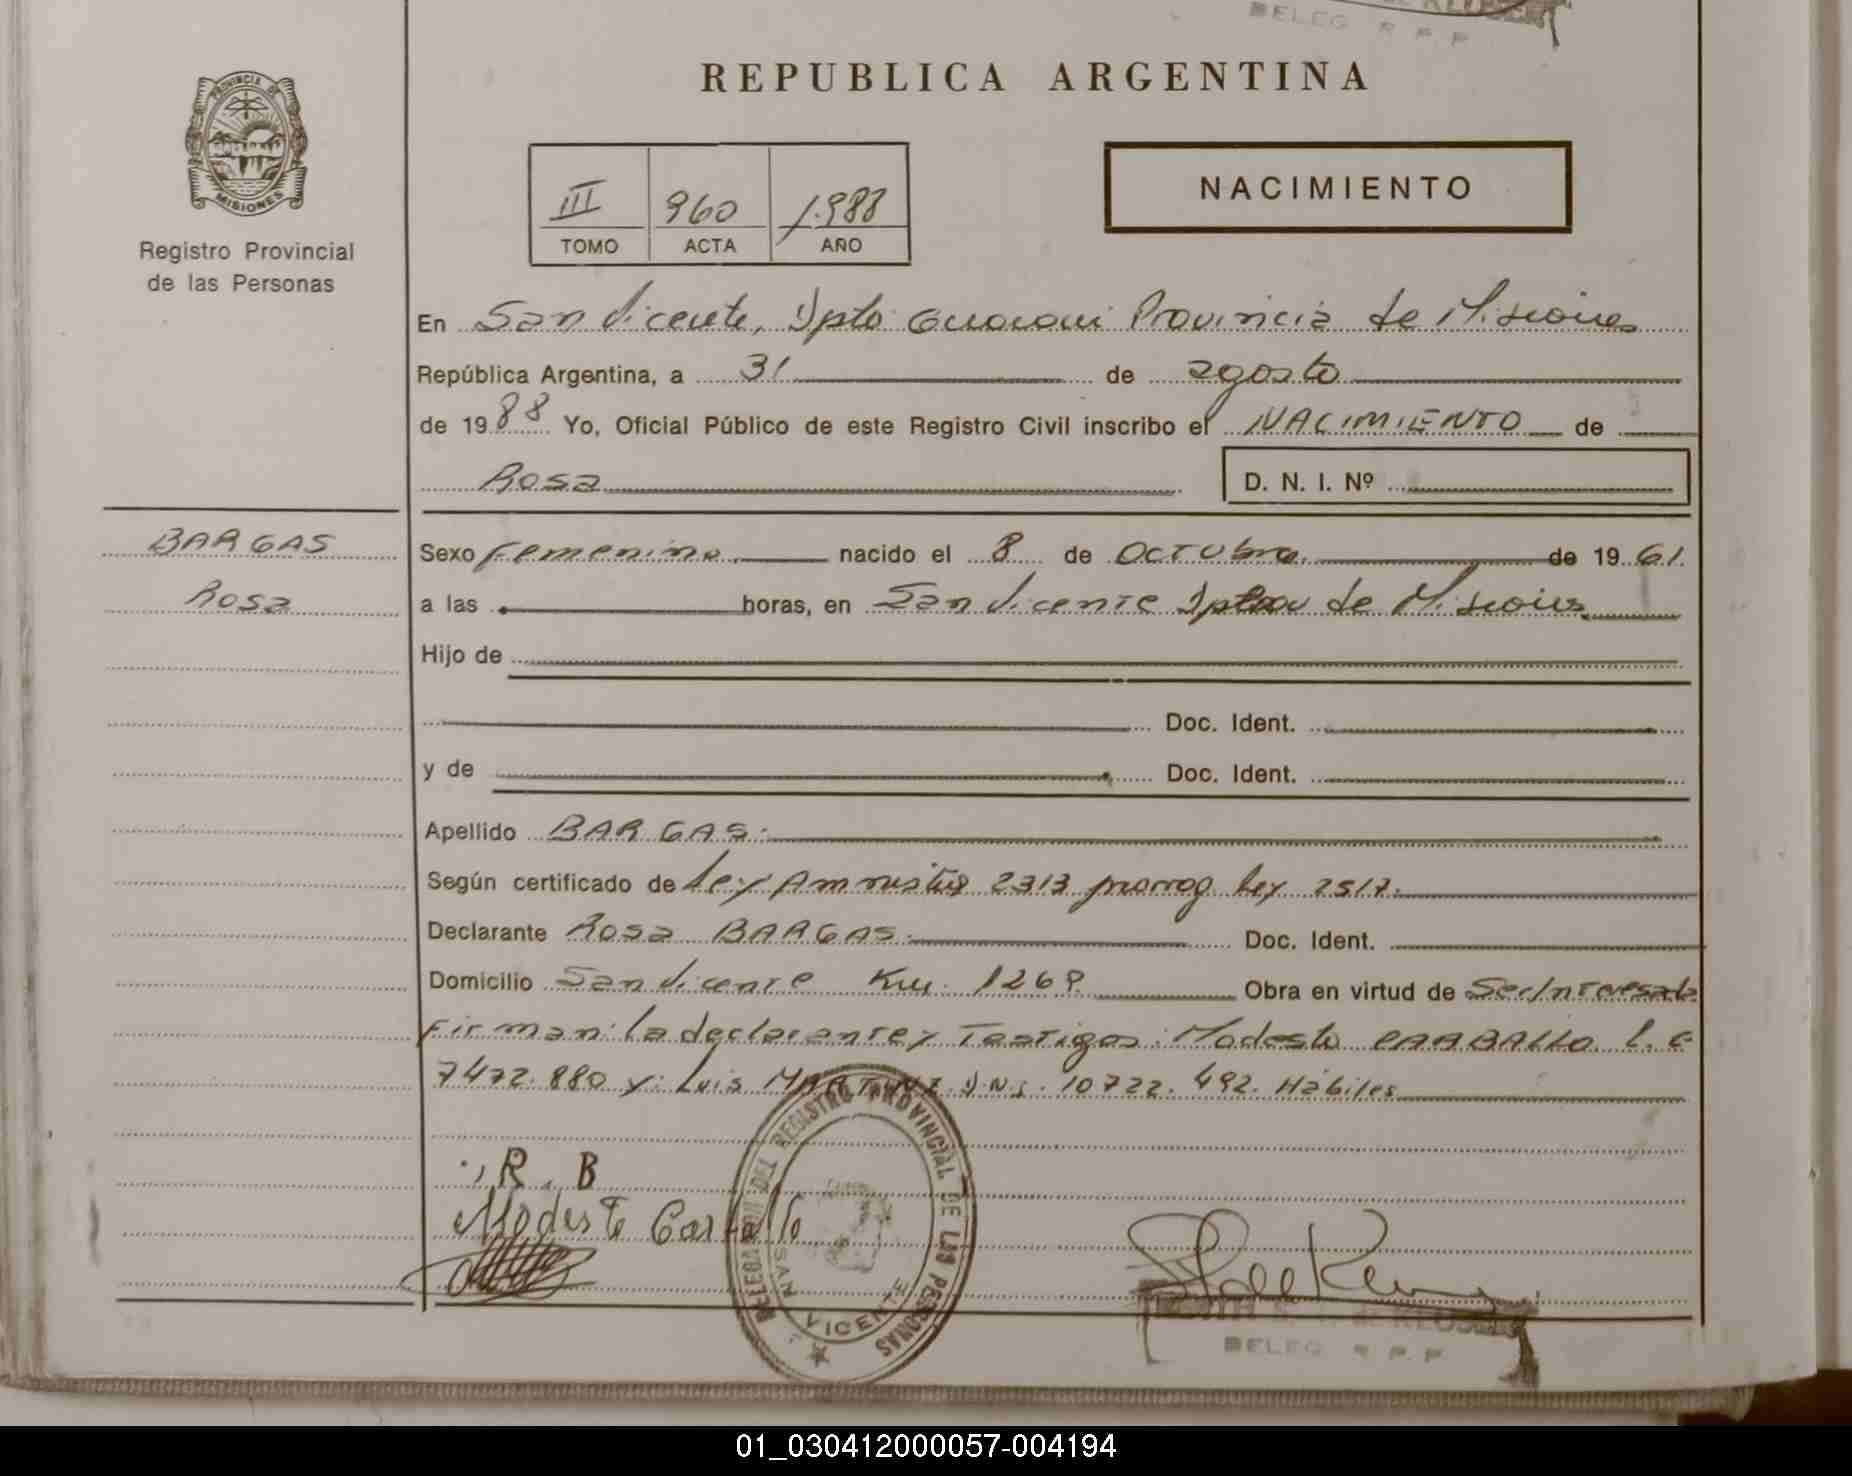 DELEG R P P
REPUBLICA ARGENTINA
PROVINCIA DE
MISIONES
Registro Provincial
de las Personas
III 960 1.988
TOMO ACTA AÑO
NACIMIENTO
En San Vicente, Dpto Guarani Provincia de Misiones
República Argentina, a 31 de agosto
de 1988 Yo, Oficial Público de este Registro Civil inscribo el NACIMIENTO de
Rosa D. N. I. Nº
BARGAS
Rosa
Sexo Femenino. nacido el 8 de Octubre. de 1961.
a las horas, en San Vicente de Misiones
Hijo de
Doc. Ident.
y de Doc. Ident.
Apellido BARGAS.
Según certificado de Ley Amnistia 2313 prorrog. Ley 2517.
Declarante Rosa BARGAS. Doc. Ident.
Domicilio San Vicente Km. 1269 Obra en virtud de Ser/Interesada
Firman: la declarante y Testigos: Modesto CARBALLO. L. E
7472.880 y: Luis MARTINEZ D.N.I. 10722.492. Hábiles
R. B
Modesto Carballo
DELEGACION DEL REGISTRO PROVINCIAL DE LAS PERSONAS
SAN VICENTE
DELEG R P. P
01_030412000057-004194